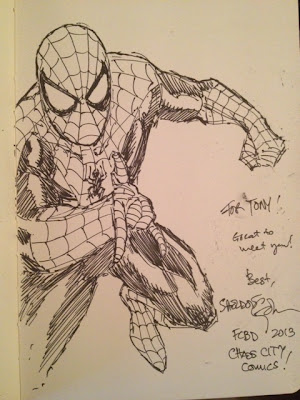 FOR TONY!
Great to
meet you!
Best,
FCBD 2013
CHAOS CITY
COMICS!